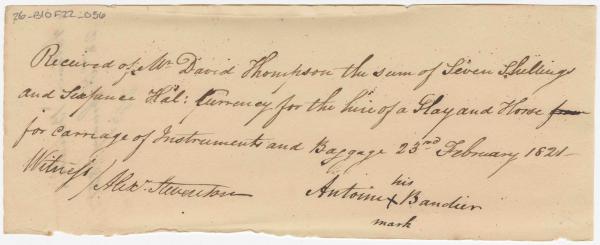 26-B10F22-056
Received of Mr David Thompson the sum of Seven Shillings
and Sixpence Hal: Currency for the hire of a Slay and Horse from
for carriage of Instruments and Baggage 23nd February 1821-
Witness / Alexr Stevenson
Antoine his X mark Bandier